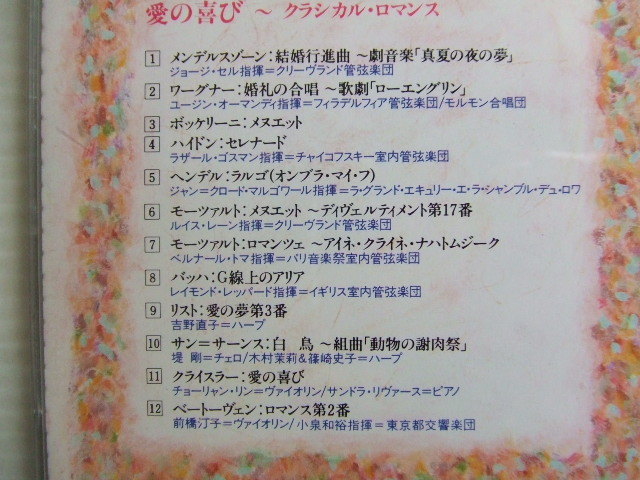 愛の喜び ～ クラシカル・ロマンス
1 メンデルスゾーン:結婚行進曲 ～劇音楽「真夏の夜の夢」
ジョージ・セル指揮＝クリーヴランド管弦楽団
2 ワーグナー:婚礼の合唱 ～歌劇「ローエングリン」
ユージン・オーマンディ指揮＝フィラデルフィア管弦楽団/モルモン合唱団
3 ボッケリーニ:メヌエット
4 ハイドン:セレナード
ラザール・ゴスマン指揮＝チャイコフスキー室内管弦楽団
5 ヘンデル:ラルゴ(オンブラ・マイ・フ)
ジャン＝クロード・マルゴワール指揮＝ラ・グランド・エキュリー・エ・ラ・シャンブル・デュ・ロワ
6 モーツァルト:メヌエット ～ディヴェルティメント第17番
ルイス・レーン指揮＝クリーヴランド管弦楽団
7 モーツァルト:ロマンツェ ～アイネ・クライネ・ナハトムジーク
ベルナール・トマ指揮＝パリ音楽祭室内管弦楽団
8 バッハ:G線上のアリア
レイモンド・レッパード指揮＝イギリス室内管弦楽団
9 リスト:愛の夢第3番
吉野直子＝ハープ
10 サン＝サーンス:白 鳥 ～組曲「動物の謝肉祭」
堤 剛＝チェロ/木村茉莉&篠崎史子＝ハープ
11 クライスラー:愛の喜び
チョーリャン・リン＝ヴァイオリン/サンドラ・リヴァース＝ピアノ
12 ベートーヴェン:ロマンス第2番
前橋汀子＝ヴァイオリン/小泉和裕指揮＝東京都交響楽団